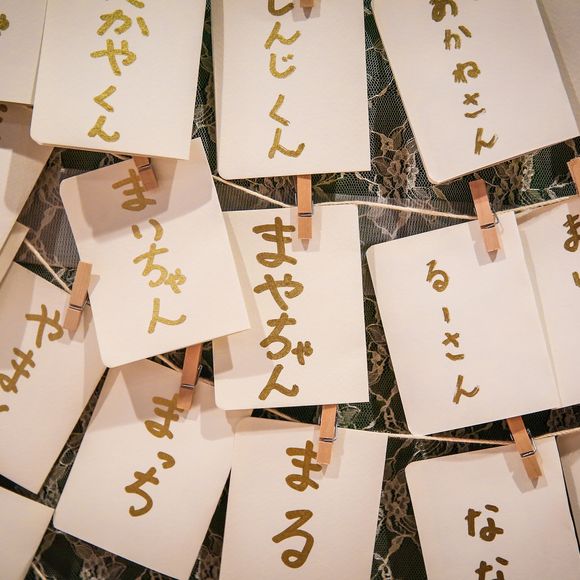 かやくん
しんじくん
あかねさん
まいちゃん
まやちゃん
るーさん
やま
まっち
まる
なな